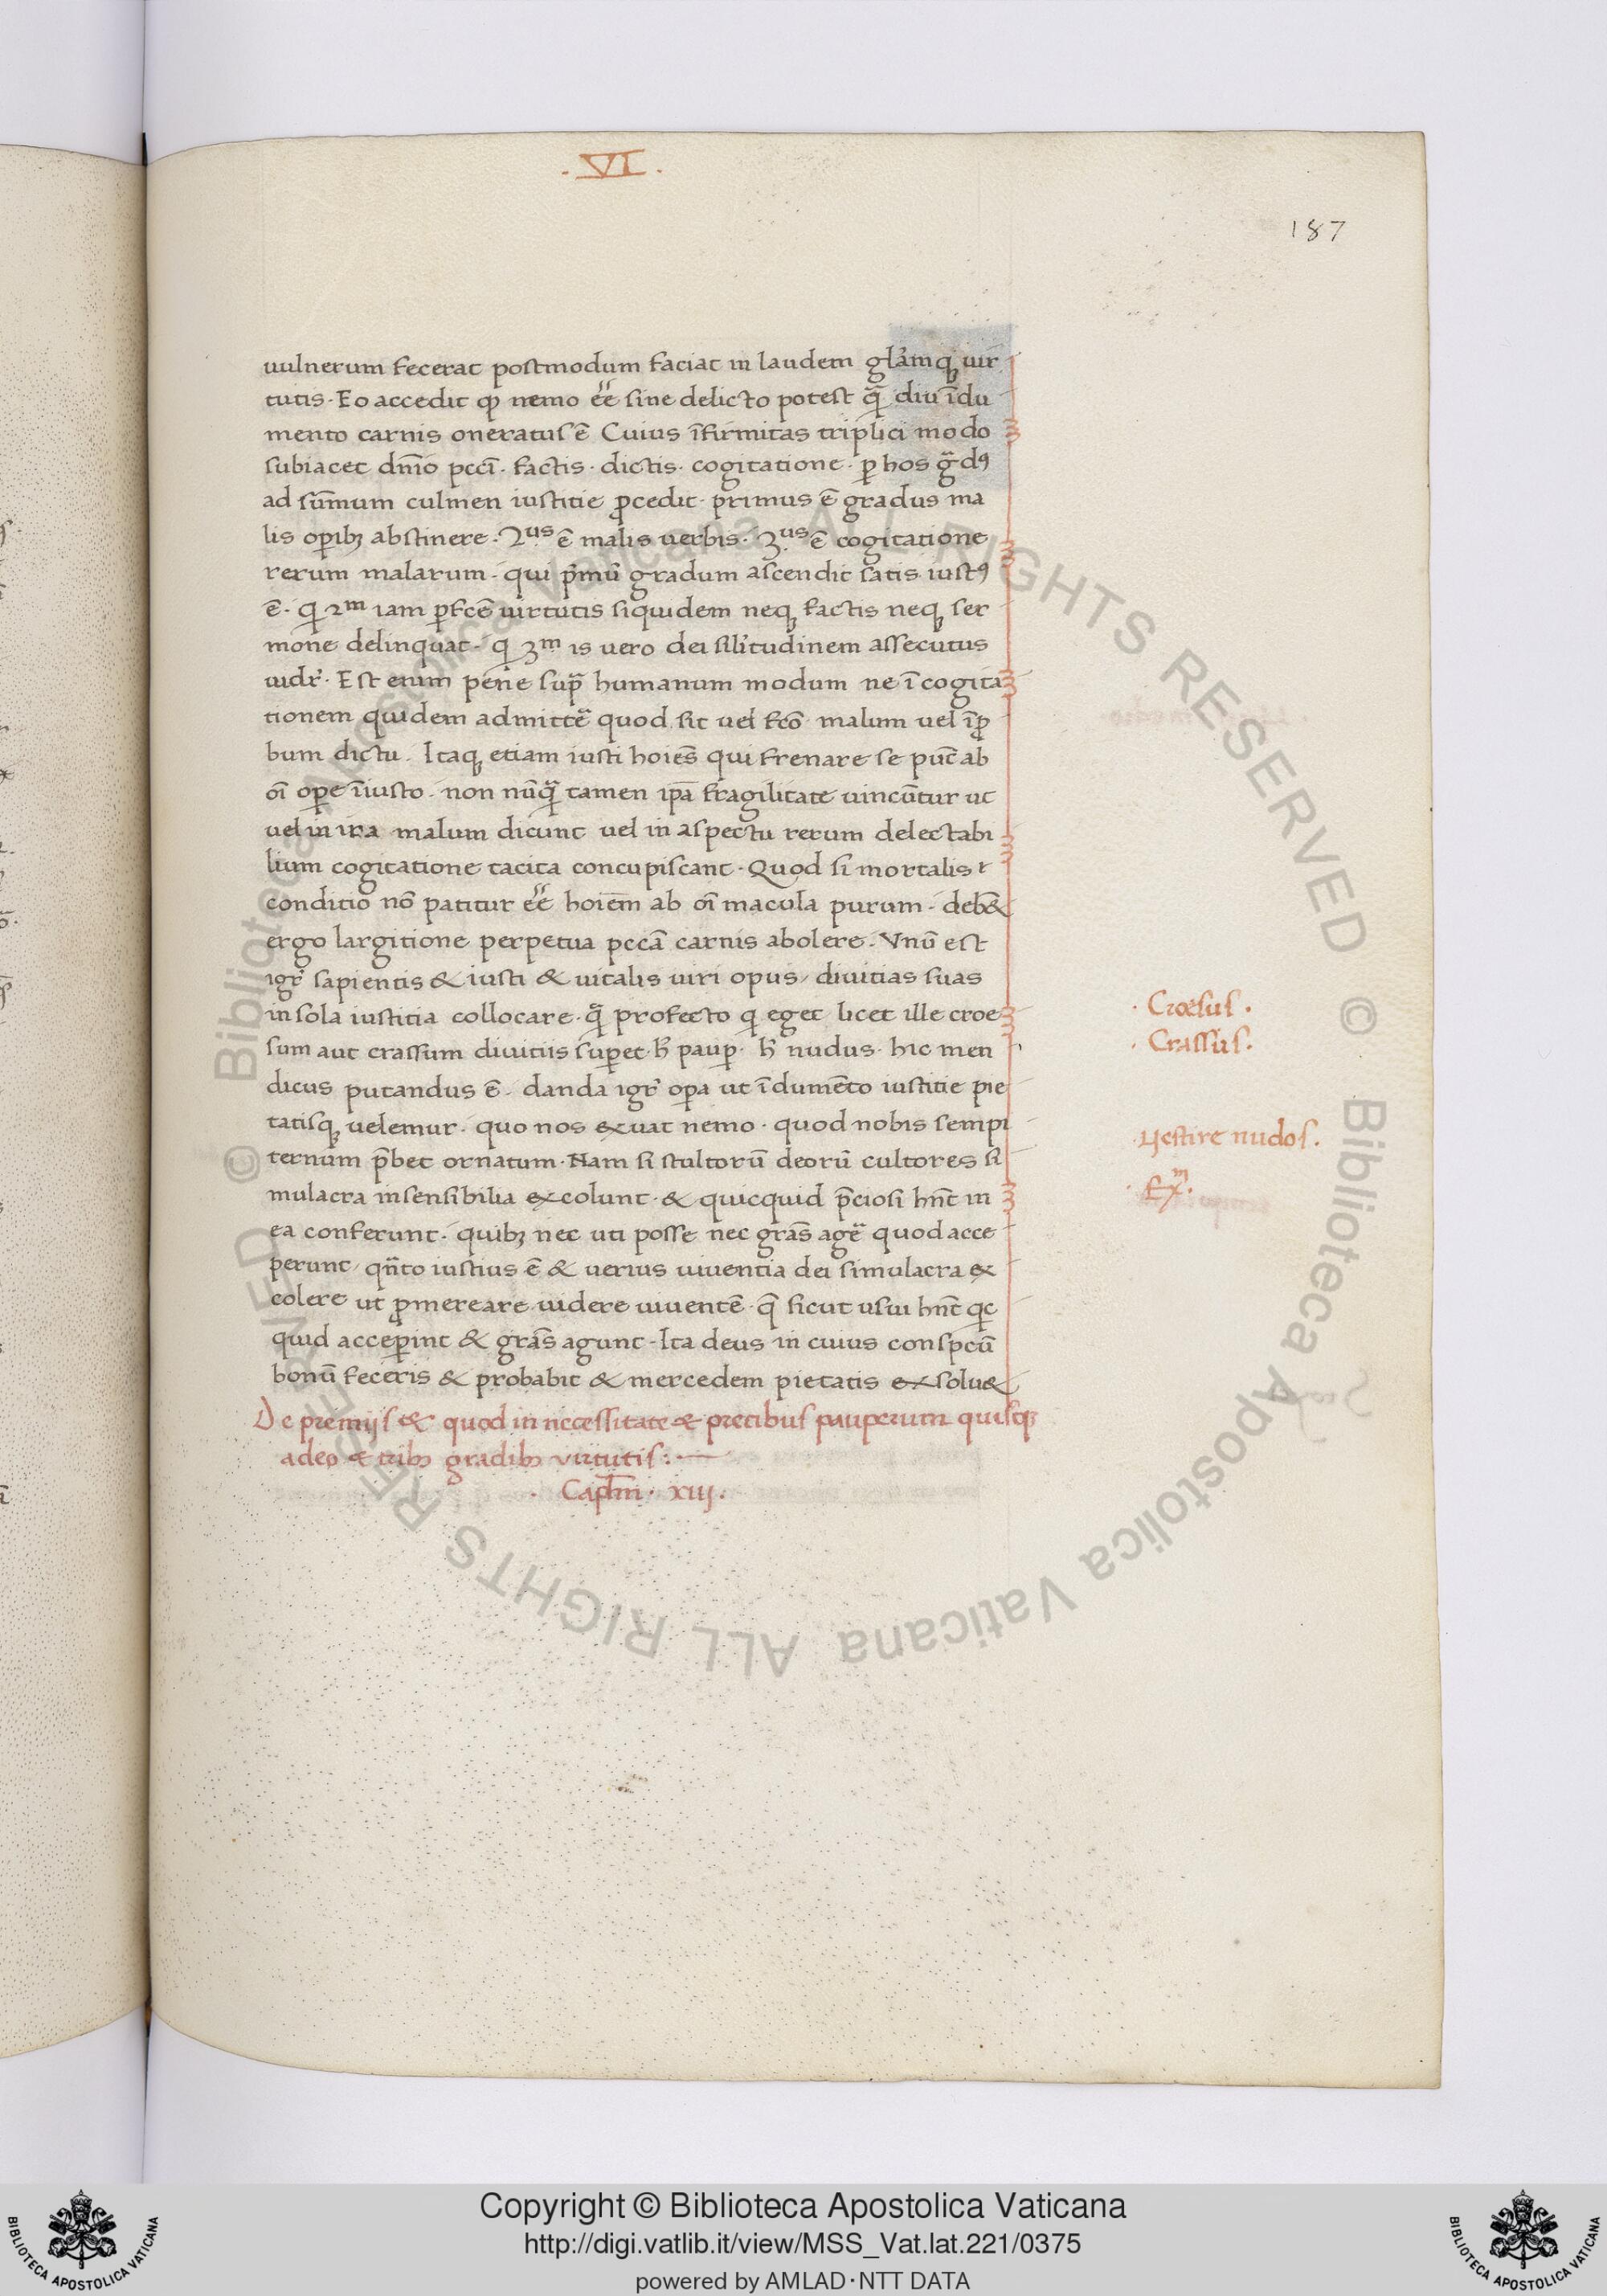 .VI.
187
uulnerum fecerat postmodum faciat in laudem gla̅mq; uir
tutis. Eo accedit qꝫ nemo ee̅ sine delicto potest qᵃ̅ diu i̅du
mento carnis oneratus e̅ Cuius i̅firmitas triplici modo
subiacet dn̅io pcci̅. factis. dictis. cogitatione. ꝑ hos gᵃdꝰ
ad su̅mum culmen iustitie ꝓcedit. primus e̅ gradus ma
lis oꝑibꝫ abstinere. 2.us e̅ malis verbis. 3.us e̅ cogitatione
rerum malarum. qui pͥmu̅ gradum ascendit satis iustꝰ
e̅. qͥ 2m iam ꝑfce̅ uirtutis siquidem neqꝫ factis neqꝫ ser
mone delinquat. qͥ 3m is vero dei sili̅tudinem assecutus
uidr̅. Est enim pene supᵃ humanum modum ne i̅ cogita
tionem quidem admitte̅ quod sit uel fco̅ malum uel i̅ꝓ
bum dictu. Itaqꝫ etiam iusti hoies̅ qui frenare se pnt̅ ab
oi̅ oꝑe i̅iusto. non nu̅qᵃ̅ tamen ip̅a fragilitate uincu̅tur ut
uel in ira malum dicunt uel in aspectu rerum delectabi
lium cogitatione tacita concupiscant. Quod si mortalis
conditio no̅ patitur ee̅ hoiem̅ ab oi̅ macula purum. deb&
ergo largitione perpetua pcca̅ carnis abolere. Vnu̅ est
igr̅ sapientis & iusti & uitalis uiri opus, diuitias suas
in sola iustitia collocare. qᵃ profecto qͥ eget licet ille croe
sum aut crassum diuitiis suꝑet. h̅ pauꝑ. h̅ nudus. hic men
dicus putandus e̅. danda igr̅ oꝑa ut i̅dume̅to iustitie pie
tatisqꝫ uelemur. quo nos exuat nemo. quod nobis sempi
ternum p̅bet ornatum. Nam si stultoru̅ deoru̅ cultores si
mulacra insensibilia excolunt. & quicquid p̅ciosi hnt̅ in
ea conferunt. quibꝫ nec uti posse nec gras̅ age̅ quod acce
perunt, qn̅to iustius e̅ & verius uiuentia dei simulacra ex
colere ut ꝓmereare uidere uiuente̅ q̅ sicut usui hnt̅ qͥc
quid acceꝑint & gras̅ agunt. Ita deus in cuius conspcu̅
bonu̅ feceris & probabit & mercedem pietatis exsolu&
De premijs & quod in necessitate & precibus pauperum quisqꝫ
adeo & tribꝫ gradibꝫ virtutis:
. Capl̅m. xiij.
. Croesus.
. Crassus.
.Vestire nudos.
. Exm.
Copyright © Biblioteca Apostolica Vaticana
http://digi.vatlib.it/view/MSS_Vat.lat.221/0375
powered by AMLAD·NTT DATA
BIBLIOTECA APOSTOLICA VATICANA
BIBLIOTECA APOSTOLICA VATICANA
© Biblioteca Apostolica Vaticana ALL RIGHTS RESERVED © Biblioteca Apostolica Vaticana ALL RIGHTS RESERVED